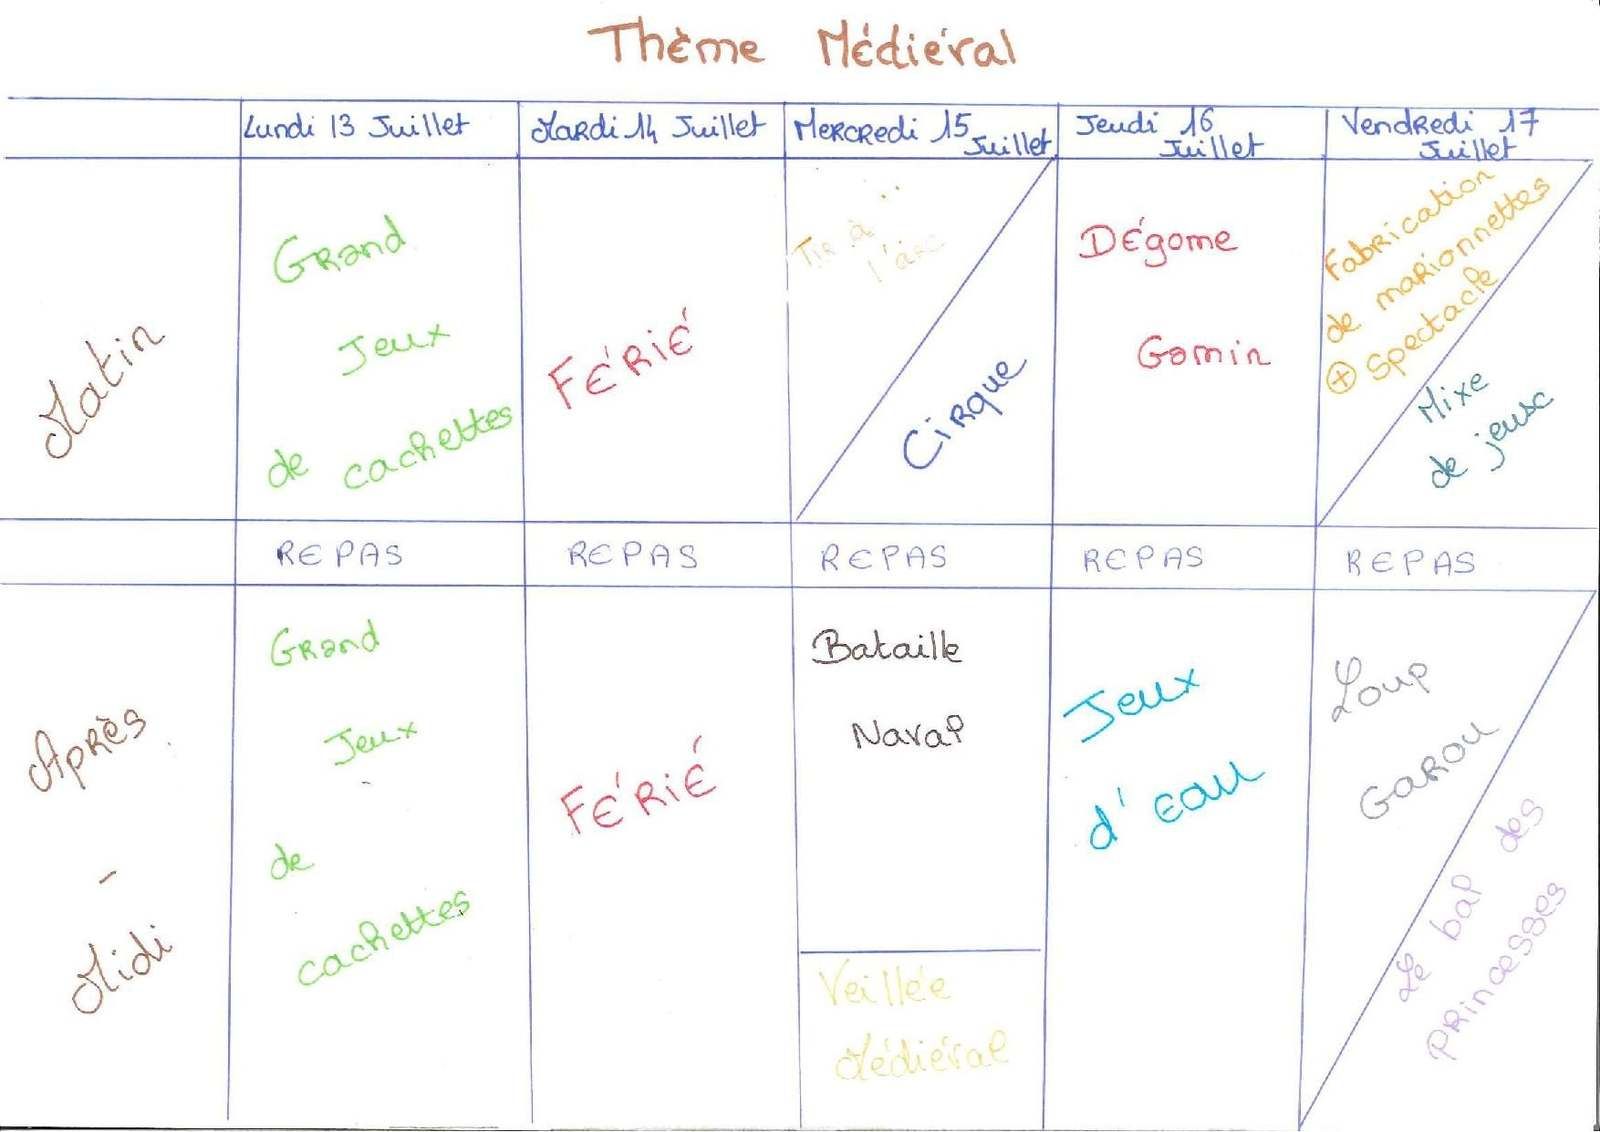 Thème Médiéral
Lundi 13 Juillet
Mardi 14 Juillet
Mercredi 15
Juillet
Jeudi 16
Juillet
Vendredi 17
Juillet
Matin
Grand
Jeux
de cachettes
FÉRIÉ
Tir à
l'arc
Cirque
Dégome
Gamin
Fabrication
de marionnettes
+ Spectacle
Mixe
de jeux
REPAS
REPAS
REPAS
REPAS
REPAS
Après
-
Midi
Grand
Jeux
de
cachettes
FÉRIÉ
Bataille
Naval
Veillée
Médiéval
Jeux
d'eau
Loup
Garou
Le bal des
Princesses